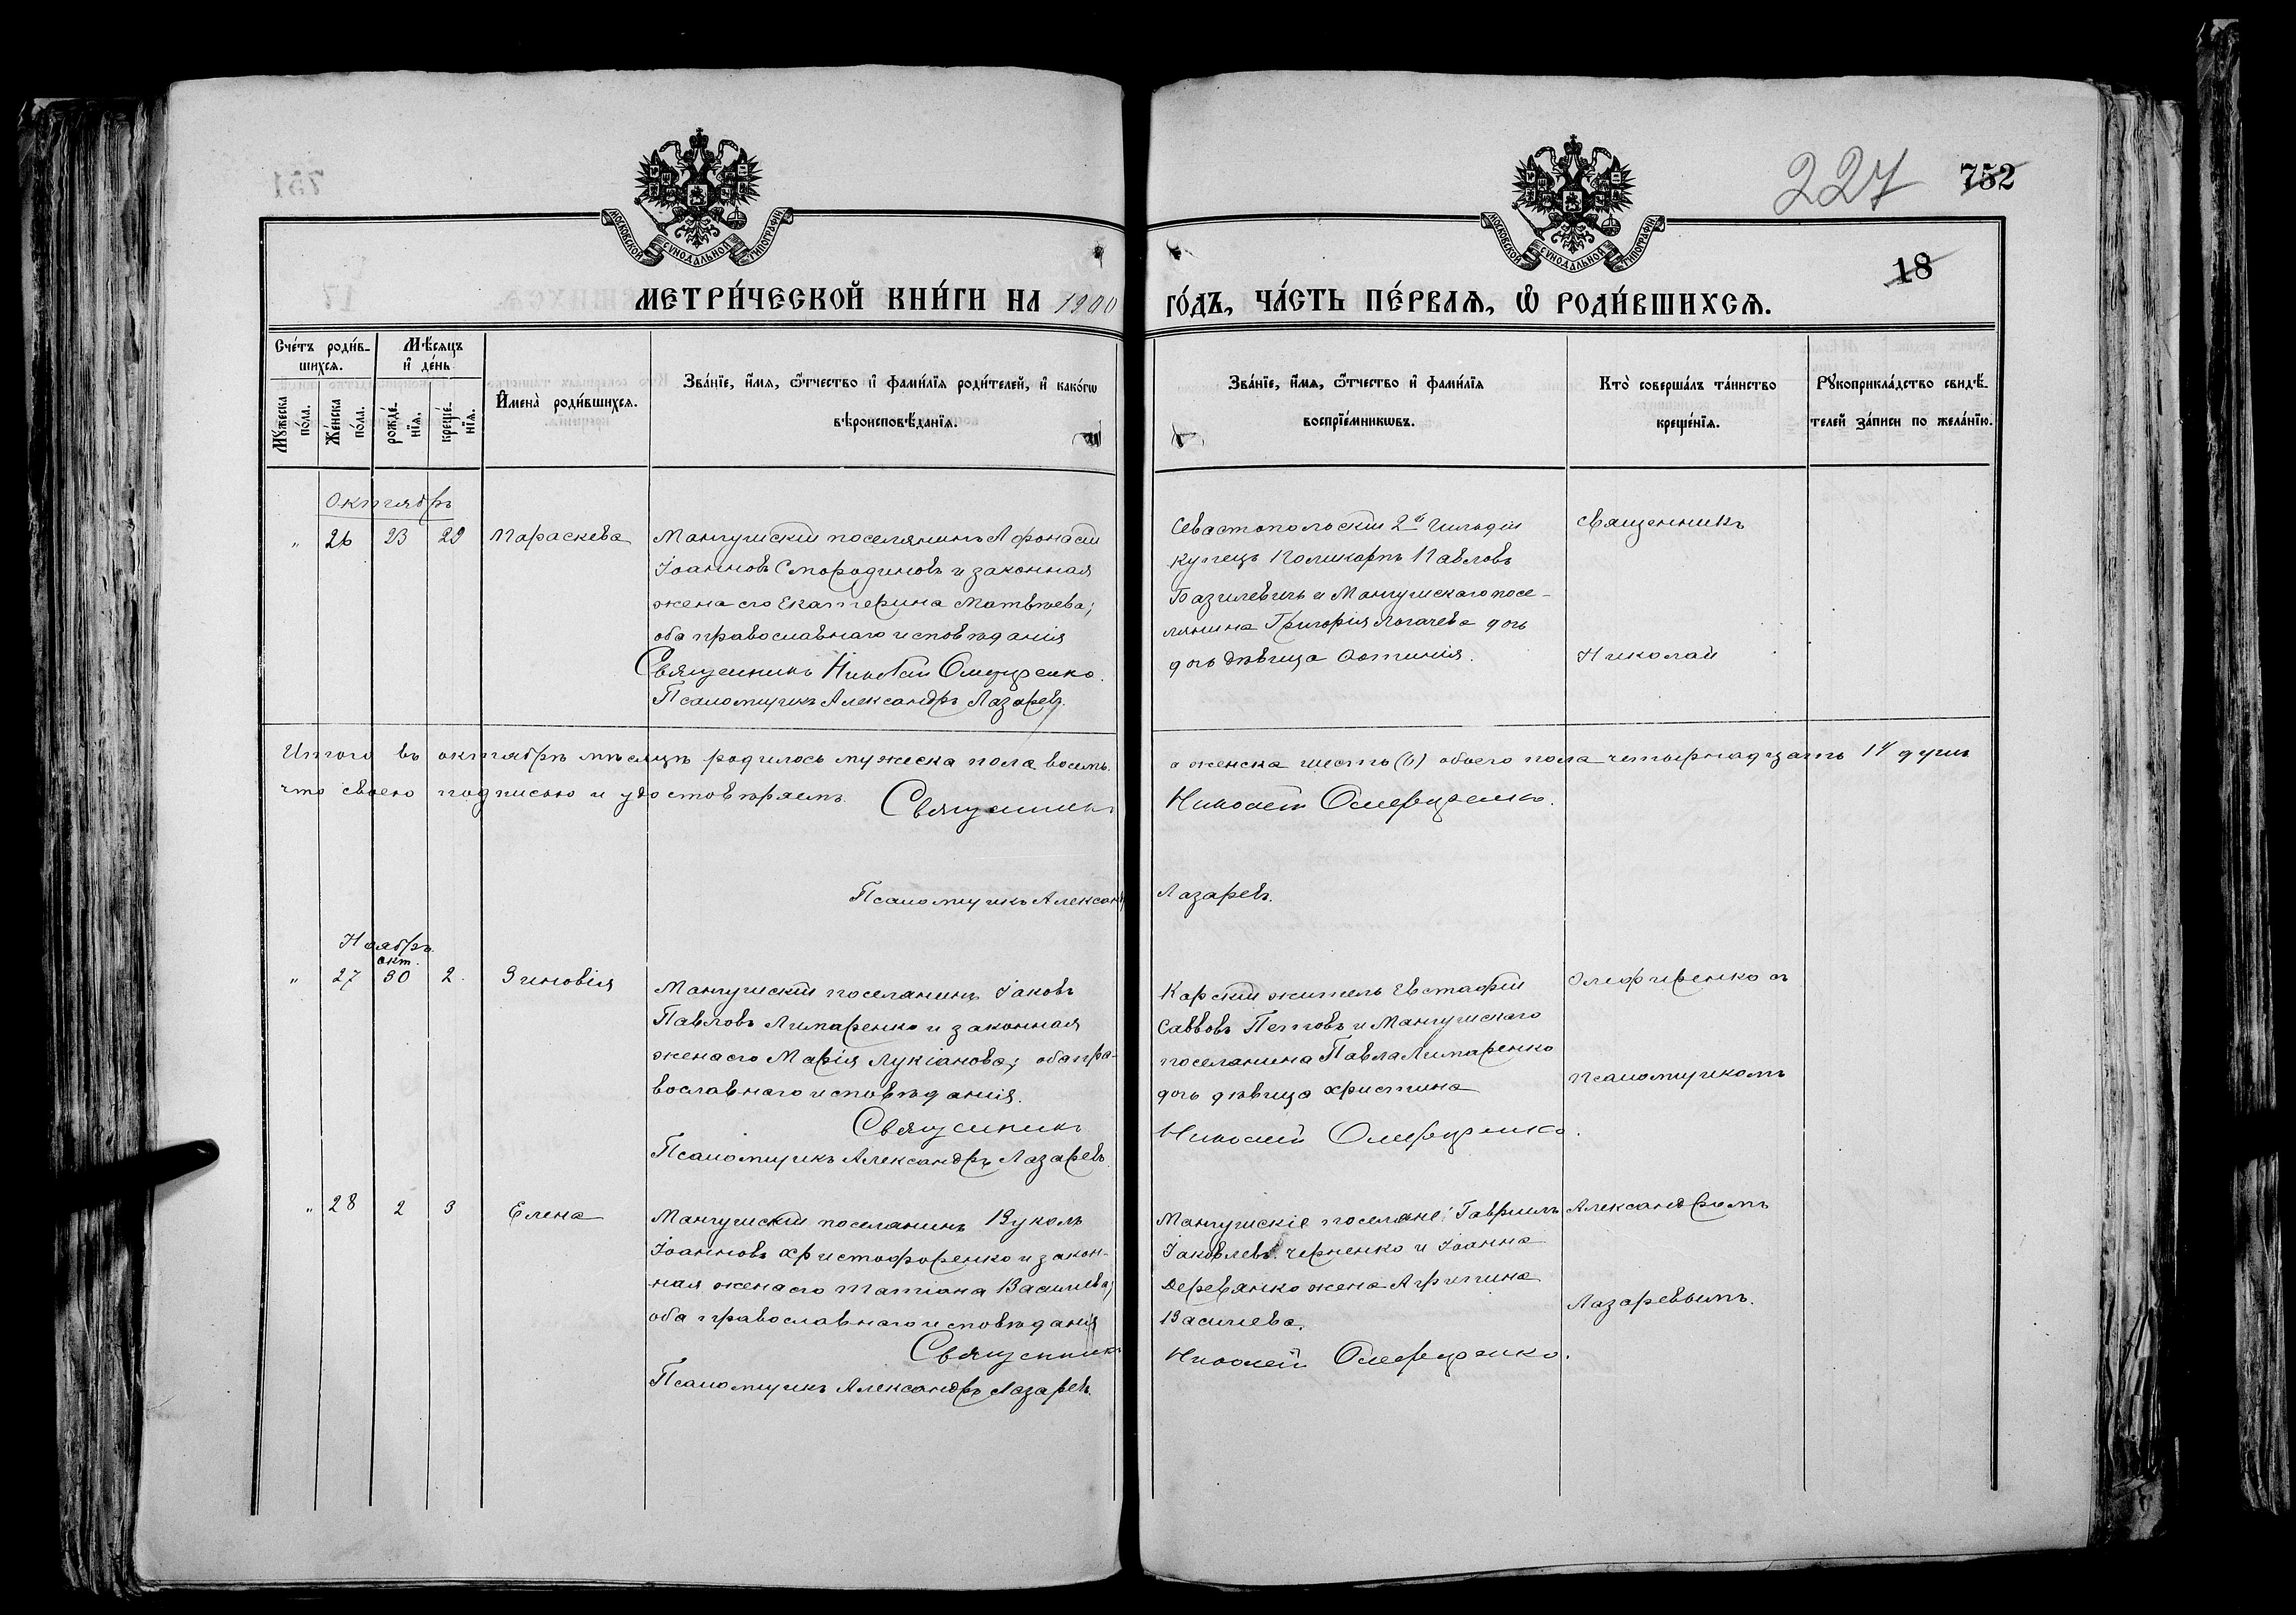 227
752
18
МОСКОВСКОЙ СѴНОДАЛЬНОЙ ТИПОГРАФІИ
МОСКОВСКОЙ СѴНОДАЛЬНОЙ ТИПОГРАФІИ
МЕТРИ́ЧЕСКОЙ КНИ́ГИ НА 1900
ГО́ДЪ, ЧА́СТЬ ПЕ́РВАѦ, Ѽ РОДИ́ВШИХСѦ.
Сче́тъ роди́вшихсѧ.
Мꙋжеска по́ла.
Же́нска по́ла.
Мѣ́сѧцъ и҆ де́нь
рожде́нїѧ.
креще́нїѧ.
И҆мена̀ роди́вшихсѧ.
Зва́нїе, и҆́мѧ, ѻ҆́тчество и҆ фами́лїѧ роди́телей, и҆ како́гѡ
вѣроисповѣ́данїѧ.
Зва́нїе, и҆́мѧ, ѻ҆́тчество и҆ фами́лїѧ
воспрїе́мникѡвъ.
Кто̀ соверша́лъ та́инство
креще́нїѧ.
Рꙋкоприкла́дство свидѣ́-
телей за́писи по жела́нїю.
Октябрь
" 26 23 29 Параскева
Мангушскій поселянинъ Афонасій
Іоанновъ Смородиновъ и законная
жена его Екатерина Матвѣева;
оба православнаго исповѣданія
Священникъ Николай
Псаломщикъ Александръ Лазаревъ.
Севастопольскій 2й гильдіи
купецъ Поликарпъ Павловъ
Базилевичъ и Мангушскаго посе-
лянина Григорія Логачева дочь
дочь дѣвица Іустинія.
Священникъ
Николай
Итого въ октябрѣ мѣсяцѣ родилось мужеска пола восемь
а женска шесть (6) обоего пола четырнадцать 14 душъ
что своею подписью и удостовѣряемъ. Священникъ
Николай
Псаломщикъ Александръ
Лазаревъ.
Ноябрь
окт.
" 27 30 2 Зиновія
Мангушскій поселянинъ Іаковъ
Павловъ Литаренко и законная
жена его Марія Лукіанова; оба пра-
вославнаго исповѣданія.
Священникъ
Псаломщикъ Александръ Лазаревъ
Карскій житель Евстафій
Саввовъ Поповъ и Мангушскаго
поселянина Павла Литаренко
дочь дѣвица Христина
Николай
Олефиренко съ
псаломщикомъ
" 28 2 3 Елена
Мангушскій поселянинъ Вуколъ
Іоанновъ Христофоренко и закон-
ная жена его Татіана Василіева;
оба православнаго исповѣданія
Священникъ
Псаломщикъ Александръ Лазаревъ.
Мангушскіе поселяне: Гавріилъ
Іаковлевъ Черненко и Іоанна
Деревянко жена Агрипина
Василіева.
Николай
Александромъ
Лазаревымъ.